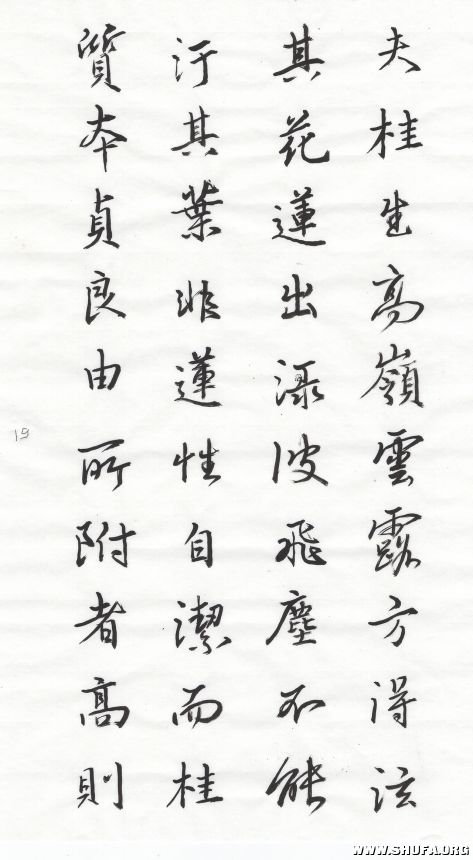 夫桂生高嶺雲露方得泫
其花蓮出渌波飛塵不能
汙其葉非蓮性自潔而桂
質本貞良由所附者高則
19
WWW.SHUFA.ORG